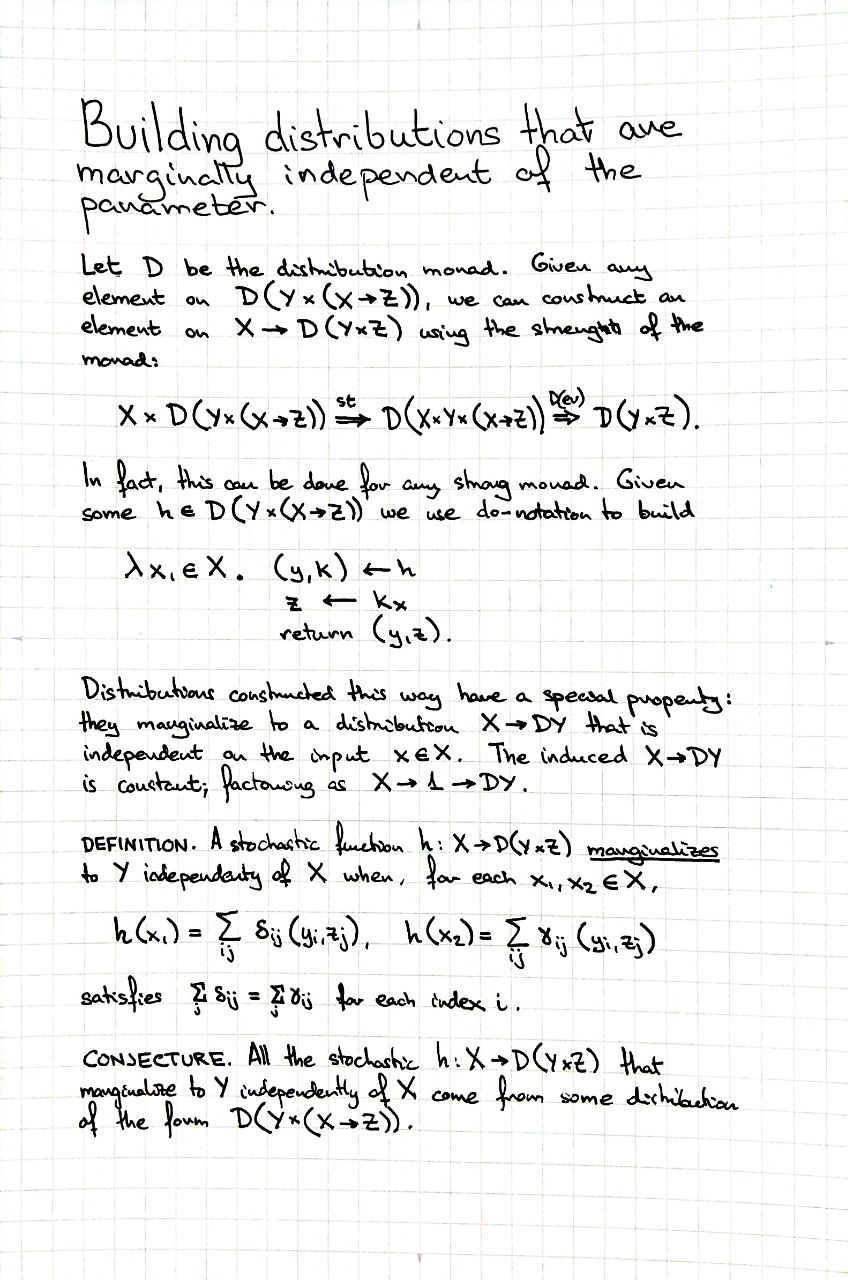 Building distributions that are
marginally independent of the
parameter.
Let D be the distribution monad. Given any
element on D(Y×(X→Z)), we can construct an
element on X → D(Y×Z) using the strenght of the
monad:
X × D(Y×(X→Z)) =st⇒ D(X×Y×(X→Z)) =D(ev)⇒ D(Y×Z).
In fact, this can be done for any strong monad. Given
some h ∈ D(Y×(X→Z)) we use do-notation to build
λx,∈X. (y,k) ← h
z ← kx
return (y,z).
Distributions constructed this way have a special property:
they marginalize to a distribution X→DY that is
independent on the input x∈X. The induced X→DY
is constant; factoring as X→1→DY.
DEFINITION. A stochastic function h: X→D(Y×Z) marginalizes
to Y independently of X when, for each x₁,x₂ ∈ X,
h(x₁) = ∑ij δij (yi,zj), h(x₂) = ∑ij γij (yi,zj)
satisfies ∑j δij = ∑j γij for each index i.
CONJECTURE. All the stochastic h: X→D(Y×Z) that
marginalize to Y independently of X come from some distribution
of the form D(Y×(X→Z)).